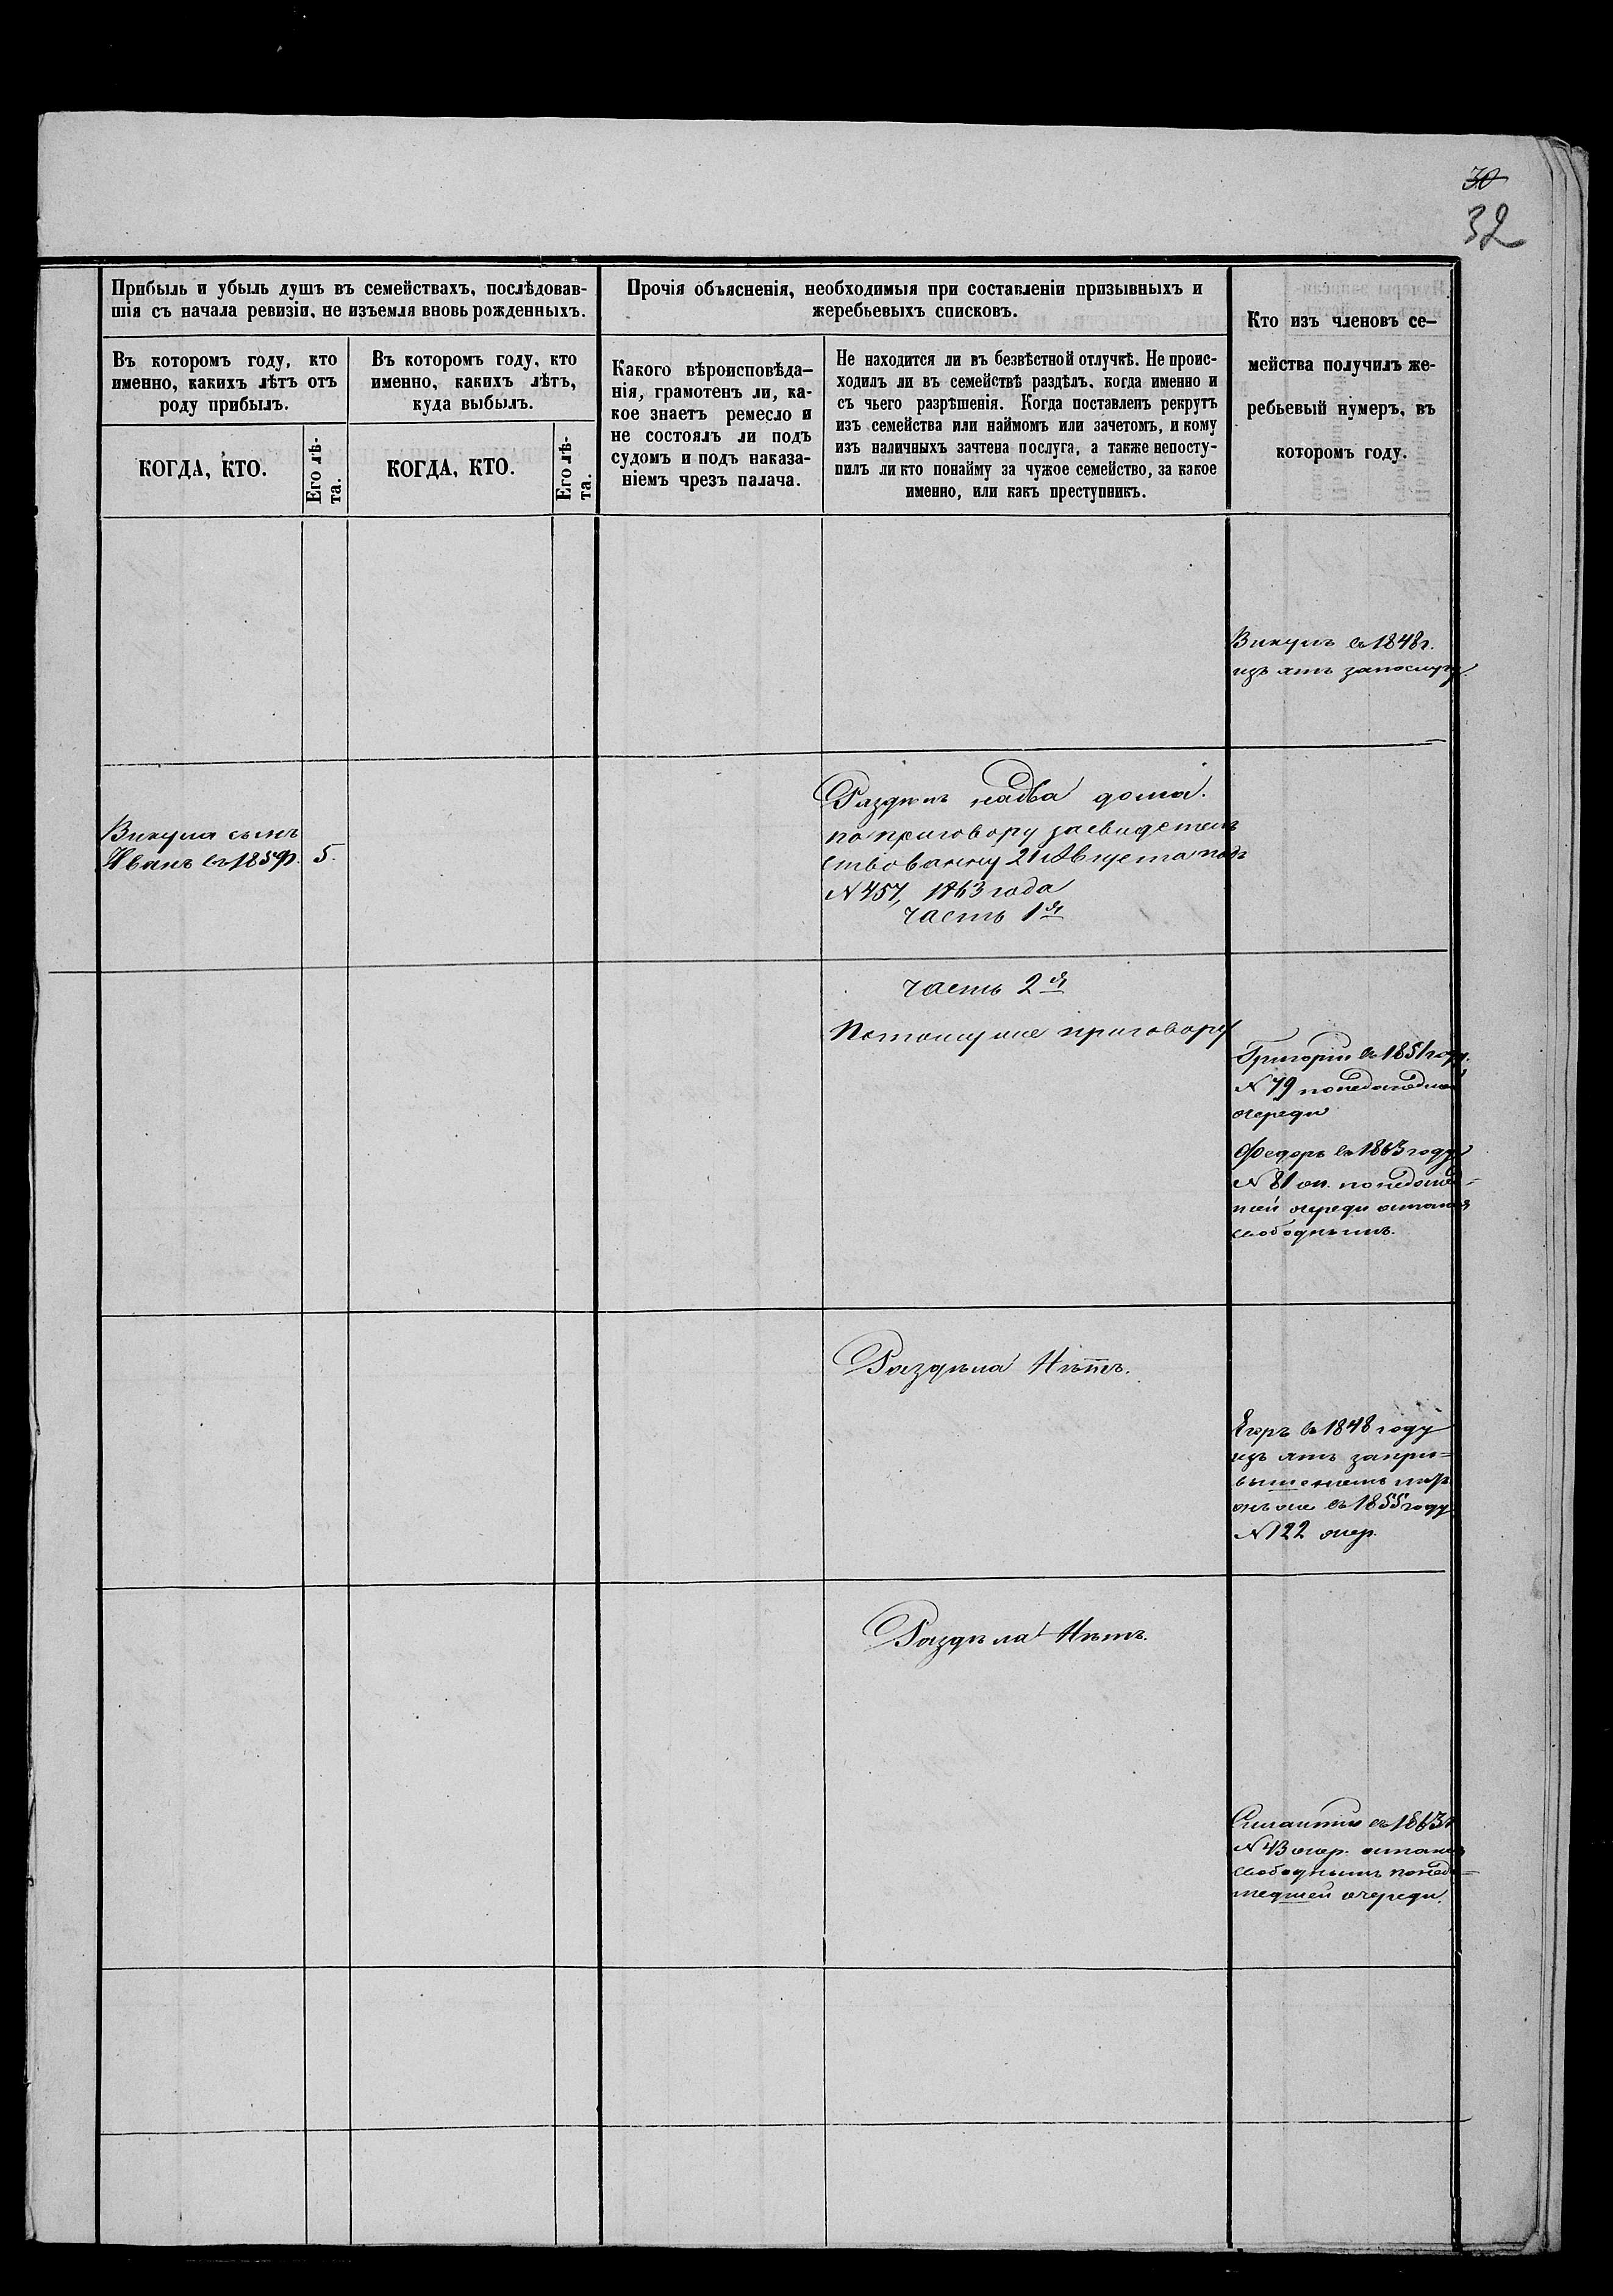 30
32
Прибыль и убыль душъ въ семействахъ, послѣдовав-
шія съ начала ревизіи, не изъемля вновь рожденныхъ.
Въ которомъ году, кто
именно, какихъ лѣтъ отъ
роду прибылъ.
Въ которомъ году, кто
именно, какихъ лѣтъ,
куда выбылъ.
КОГДА, КТО.
Его лѣ-
та.
КОГДА, КТО.
Его лѣ-
та.
Прочія объясненія, необходимыя при составленіи призывныхъ и
жеребьевыхъ списковъ.
Какого вѣроисповѣда-
нія, грамотенъ ли, ка-
кое знаетъ ремесло и
не состоялъ ли подъ
судомъ и подъ наказа-
ніемъ чрезъ палача.
Не находится ли въ безвѣстной отлучкѣ. Не проис-
ходилъ ли въ семействѣ раздѣлъ, когда именно и
съ чьего разрѣшенія. Когда поставленъ рекрутъ
изъ семейства или наймомъ или зачетомъ, и кому
изъ наличныхъ зачтена послуга, а также непосту-
пилъ ли кто понайму за чужое семейство, за какое
именно, или какъ преступникъ.
Кто изъ членовъ се-
мейства получилъ же-
ребьевый нумеръ, въ
которомъ году.
Викулъ въ 1848 г.
изъятъ
Викула сынъ
Иванъ въ 1859. 5.
Раздѣлъ надва дома.
по приговору засвидетель
ствованну 21 Августа подъ
N 457, 1863 года
часть 1я
часть 2я
Потомуже приговору
Григорій въ 1851 году.
N 79
очереди
Федоръ въ 1863 году
N 81
очереди
свободнымъ.
Раздѣла Нѣтъ.
Егоръ въ 1848 году
изъятъ
въ 1855 году
N 122 очер.
Раздѣла Нѣтъ.
въ 1863 г
N 43 очер.
свободнымъ понедо=
шедшей очереди.